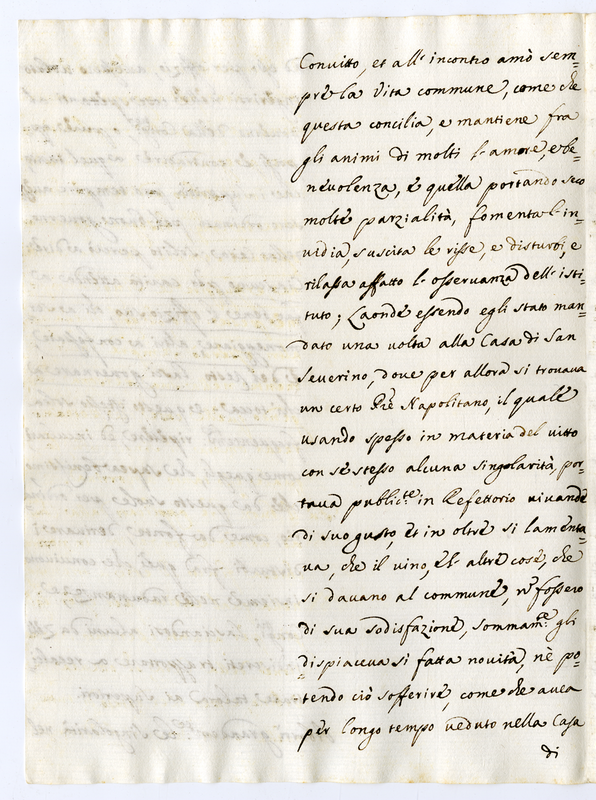 Convitto, et all' incontro amò sem=
prè la Vita commune, come che
questa concilia, e mantiene fra
gli animi di molti l'amore, e be=
nevolenza, è quella portando seco
moltè parzialità, fomenta l'in=
vidia, suscita le risse, e disturbi, e
rilassa affatto l'osservanza dell'isti=
tuto; Laondè essendo egli stato man=
dato una volta alla Casa di San
Severino, dove per allora si trovava
un certo Prè Napolitano, il qualè
usando spesso in materia del vitto
con sè stesso alcuna singolarità, por=
tava public.te in Refettorio vivandè
di suo gusto, èt in oltrè si lamenta=
va, che il vino, è l'altrè cosè, che
si davano al communè, nō fossero
di sua sodisfazionè, sommam.e gli
dispiaceva si fatta novità, nè po=
tendo ciò sofferirè, come che avea
pèr longo tempo veduto nella Casa
di